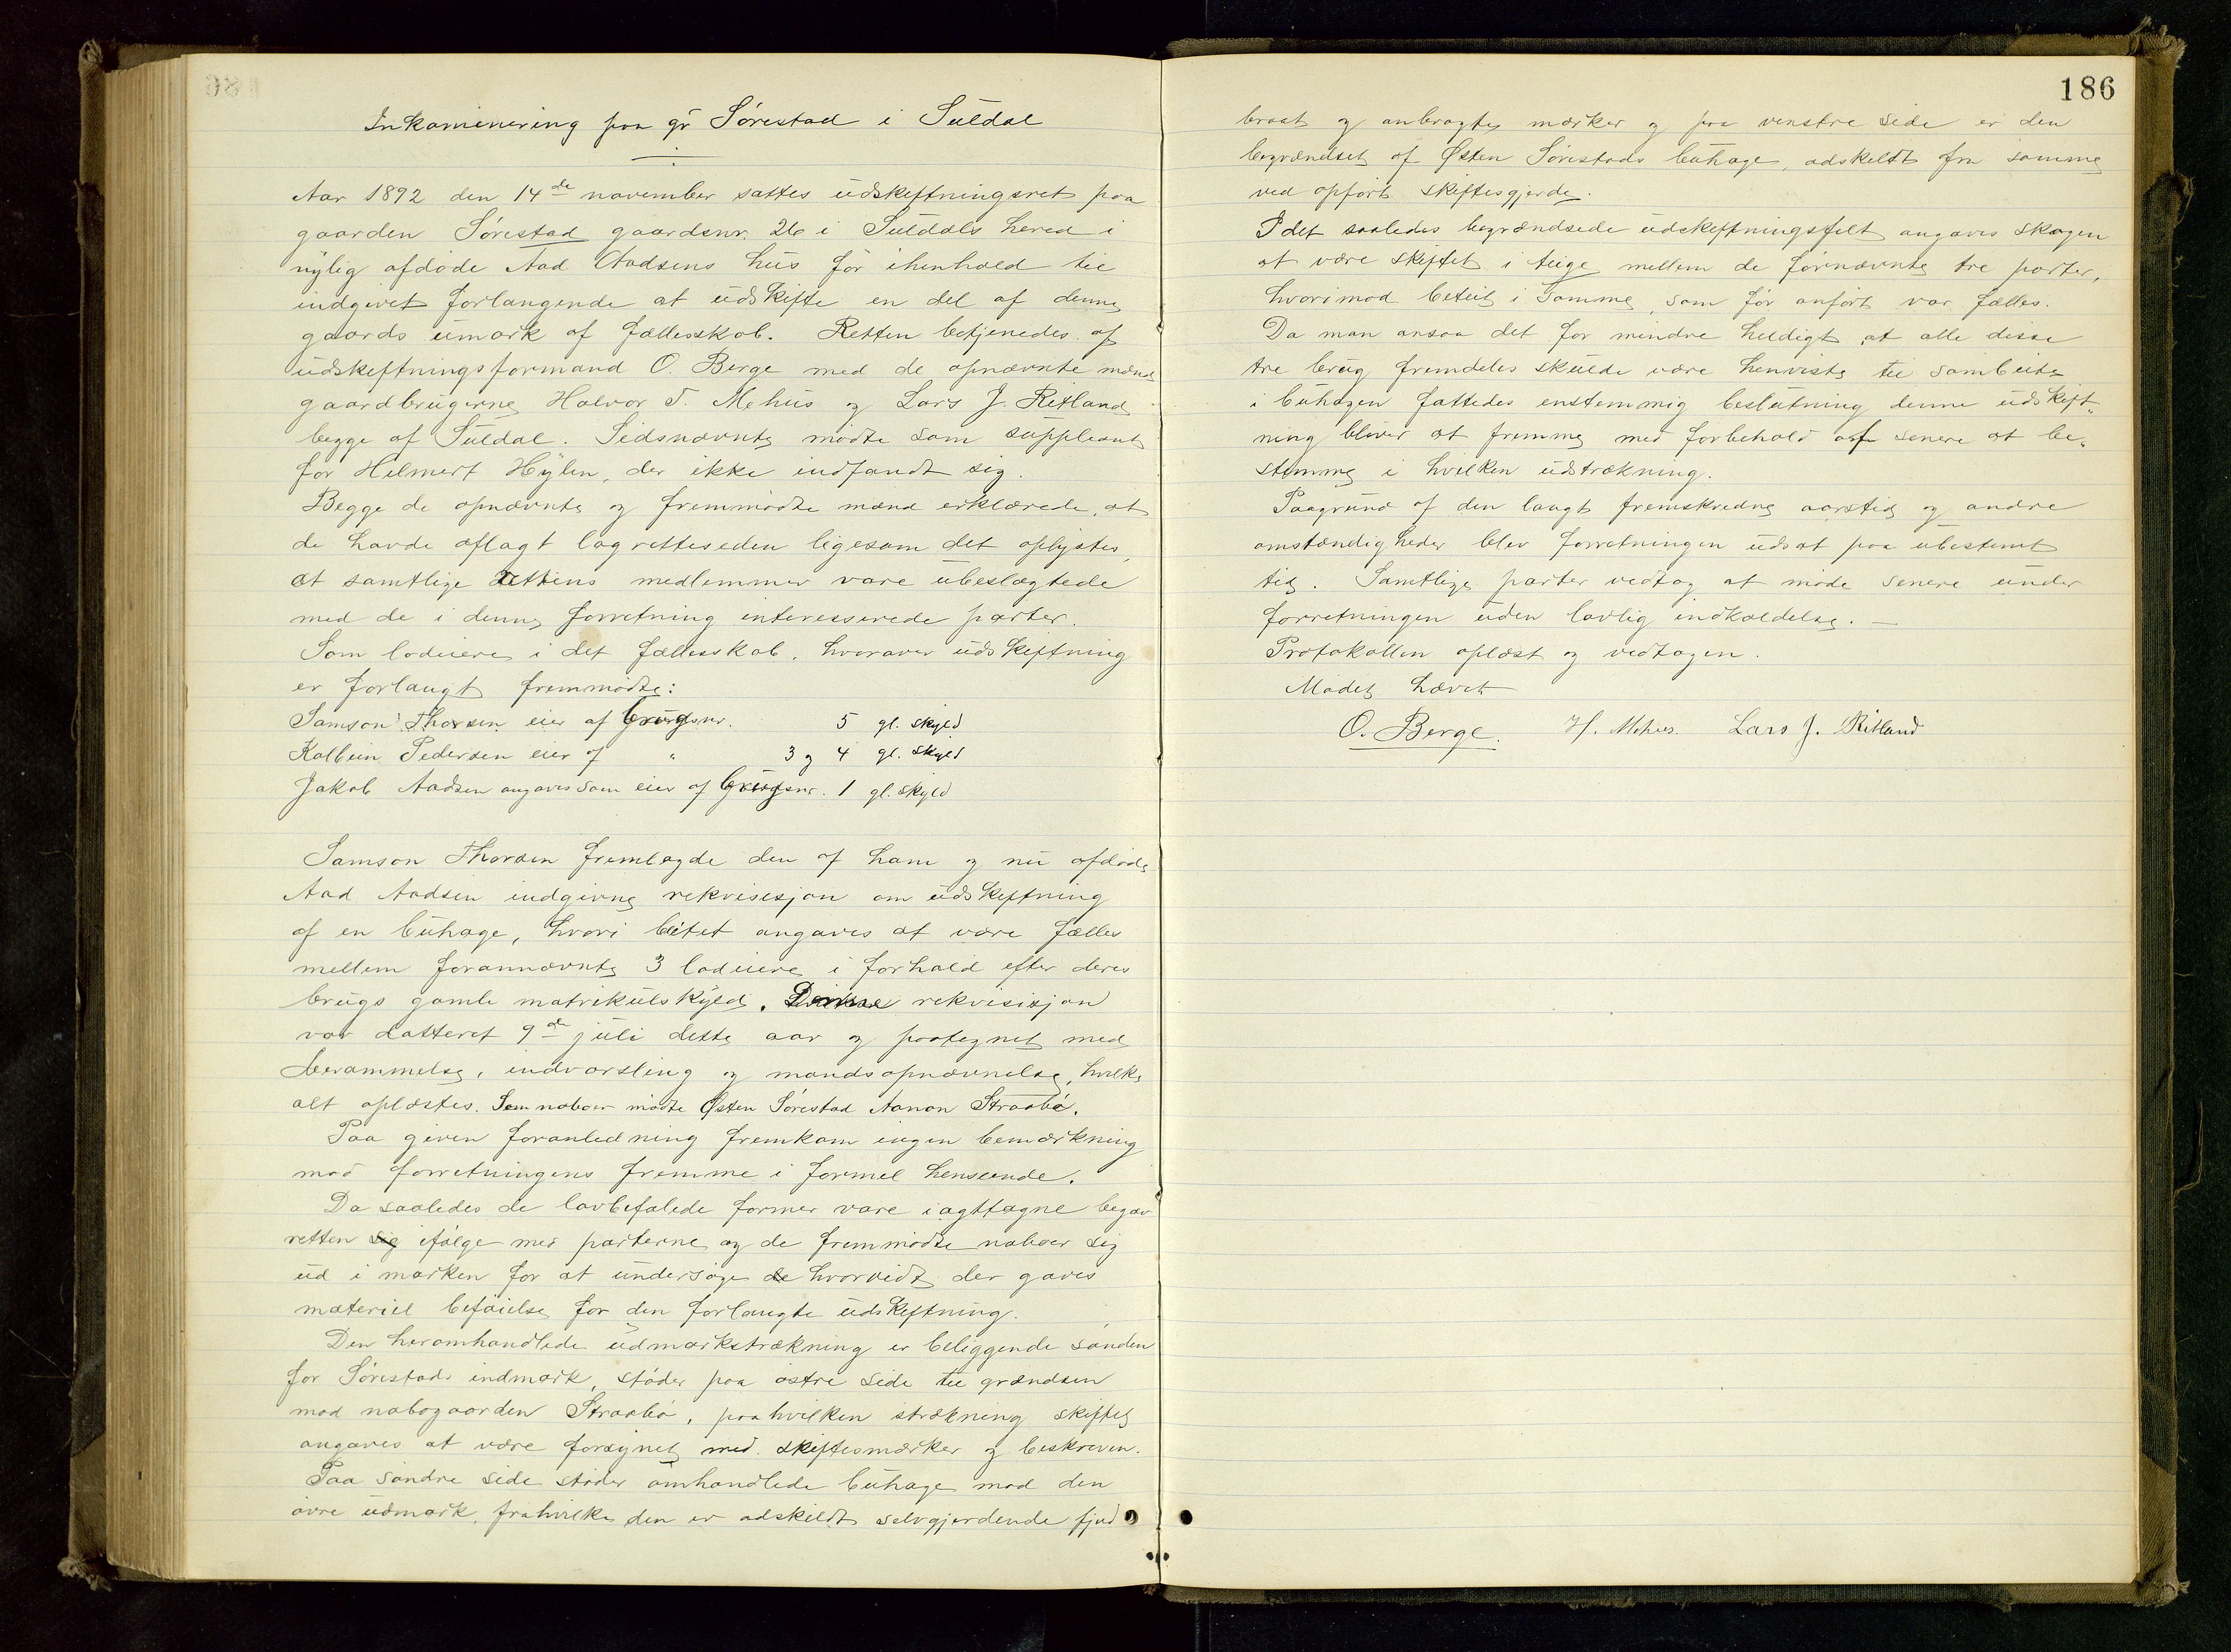 Inkaminering paa gr Sörestad i Suldal
Aar 1892 den 14de november sattes udskeftningsret paa
gaarden Sörestad gaardsnr. 26 i Suldals hered i
nylig afdöde Aad Aadsens hus for ihenhold til
indgivet forlangende at udskifte en del af denne
gaards umark af fællesskab. Retten betjenedes af
udskeftningsformand O. Berge med de opnævnte mænd
gaardbrugerne Halvor T. Mehus og Lars J. Ritland
begge af Suldal. Sidsnævnte mödte som suppleant
for Helmert Hylen, der ikke indfandt sig.
Begge de opnævnte og fremmödte mænd erklærede, at
de havde aflagt lagretteseden ligesom det oplystes,
at samtlige rettens medlemmer vare ubeslægtede
med de i denne forretning interesserede parter.
Som lodeiere i det fællesskab, hvoraver udskiftning
er forlangt fremmödte:
Samson Thorsen eier af brugsnr. 5 gl. skyld
Kolbein Pedersen eier af " 3 og 4 gl. skyld
Jakob Aadsen angaves som eier af brugsnr. 1 gl. skyld
Samson Thorsen fremlagde den af ham og nu afdöde
Aad Aadsen indgivne rekvisisjon om udskeftning
af en buhage, hvori beitet angaves at være fælles
mellem forannævnte 3 lodeiere i forhold efter deres
brugs gamle matrikulskyld. Denne rekvisisjon
var datteret 9de juli dette aar og paategnet med
berammelse, indvarsling og mandsopnævnelse, hvilke
alt oplæstes. Som naboer mödte Østen Sörestad Aanon Straabö.
Paa given foranledning fremkom ingen bemærkning
mod forretningens fremme i formel henseende.
Da saaledes de lovbefalede former vare iagttagne begav
retten sig ifölge med parterne og de fremmödte naboer sig
ud i marken for at undersöge de hvorvidt der gaves
materiel beföielse for den forlangte udskeftning.
Den heromhandlede udmarkstrækning er beliggende sönden
for Sörestads indmark, stöder paa östre side til grændsen
mod nabogaarden Straabö, paahvilken strækning skiftet
angaves at være forsynet med skiftesmærker og beskreven.
Paa söndre side stöder omhandlede buhage mod den
övre udmark, frahvilke den er adskildt selvgjerdende fjeld
186
braat og anbragte mærker og paa venstre side er den
begrændset af Østen Sörestads buhage, adskeldt fra samme
ved opfört skiftesgjerde.
I det saaledes begrændsede udskeftningsfelt angaves skogen
at være skiftet i teige mellem de fornævnte tre parter,
hvorimod beteit i samme, som för anfört var fælles.
Da man ansaa det for mindre heldigt, at alle disse
tre brug fremdeles skulde være henviste til sambeite
i buhagen fattedes enstemmig beslutning denne udskift-
ning bliver at fremme med forbehold af senere at be-
stemme i hvilken udstrækning.
Paagrund af den langt fremskredne aarstid og andre
omstændigheder blev forretningen udsat paa ubestemt
tid. Samtlige parter vedtog at möde senere under
forretningen uden lovlig indkaldelse. —
Protokollen oplæst og vedtagen.
Mödet hævet
O. Berge. H. Mehus. Lars J. Ritland